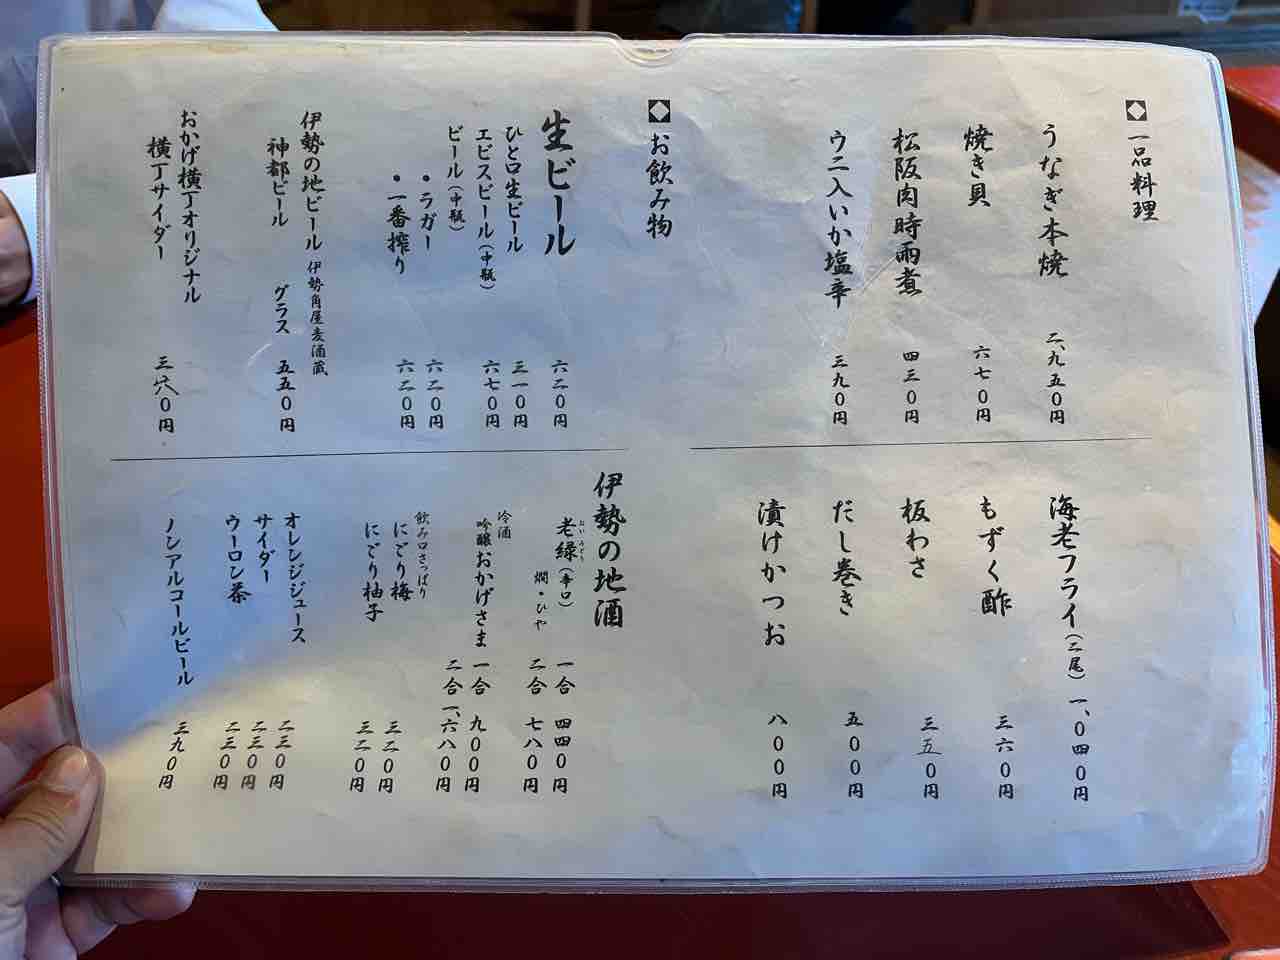 一品料理
うなぎ本焼 二、九五〇円
焼き貝 六七〇円
松阪肉時雨煮 四三〇円
ウニ入いか塩辛 三九〇円
海老フライ(二尾) 一、〇四〇円
もずく酢 三六〇円
板わさ 三五〇円
だし巻き 五〇〇円
漬けかつお 八〇〇円
お飲み物
生ビール 六二〇円
ひと口生ビール 三一〇円
エビスビール(中瓶) 六七〇円
ビール(中瓶)
・ラガー 六二〇円
・一番搾り 六二〇円
伊勢の地ビール 伊勢角屋麦酒蔵
神都ビール グラス 五五〇円
おかげ横丁オリジナル
横丁サイダー 三六〇円
伊勢の地酒
おいみどり
老緑(辛口) 一合 四四〇円
燗・ひや 二合 七八〇円
冷酒
吟醸おかげさま 一合 九〇〇円
二合 一、六八〇円
飲み口さっぱり
にごり梅 三二〇円
にごり柚子 三二〇円
オレンジジュース 二三〇円
サイダー 二三〇円
ウーロン茶 二三〇円
ノンアルコールビール 三九〇円